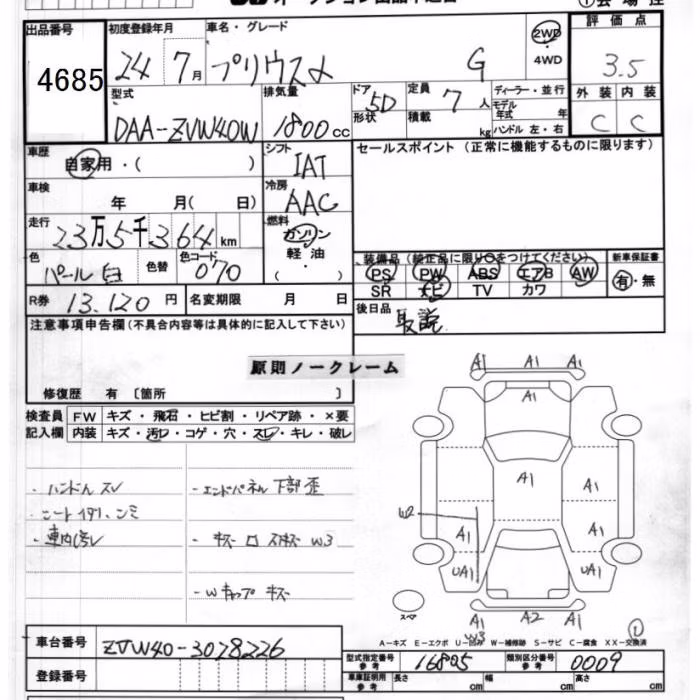 出品番号
4685
初度登録年月
24 7月
車名・グレード
プリウスα G
2WD
・
4WD
評価点
3.5
型式
DAA-ZVW40W
排気量
1800cc
ドア
形状
5D
定員
積載
7人
kg
ディーラー・並行
モデル
年式 年
ハンドル 左・右
外装 内装
C C
車歴
自家用・( )
シフト
IAT
セールスポイント (正常に機能するものに限ります)
車検
年 月( 日)
冷房
AAC
走行
23万5千364km
燃料
ガソリン
軽油
( )
色
パール白
色替
色コード
070
装備品 (純正品に限り○をつけてください)
PS PW ABS エアB AW
SR ナビ TV カワ
新車保証書
有・無
R券 13,120円
名変期限 月 日
後日品
取説
注意事項申告欄 (不具合内容等は具体的に記入して下さい)
原則ノークレーム
修復歴 有〔箇所 〕
検査員
記入欄
FW キズ・飛石・ヒビ割・リペア跡・×要
内装 キズ・汚レ・コゲ・穴・スレ・キレ・破レ
・ハンドルスレ
・車内汚レ
・エンドパネル下部歪
・Wキャップキズ
A1 A1 A1
A1
A1
A1
A1
A1
UA1
UA1
A1 A2 A1
W3
スペア
A-キズ E-エクボ U-凹み W-補修跡 S-サビ C-腐食 XX-交換済
車台番号
ZVW40-3028226
登録番号
型式指定番号
参考
16805
類別区分番号
参考
0009
車庫証明用
参考
長さ cm 幅 cm 高さ cm